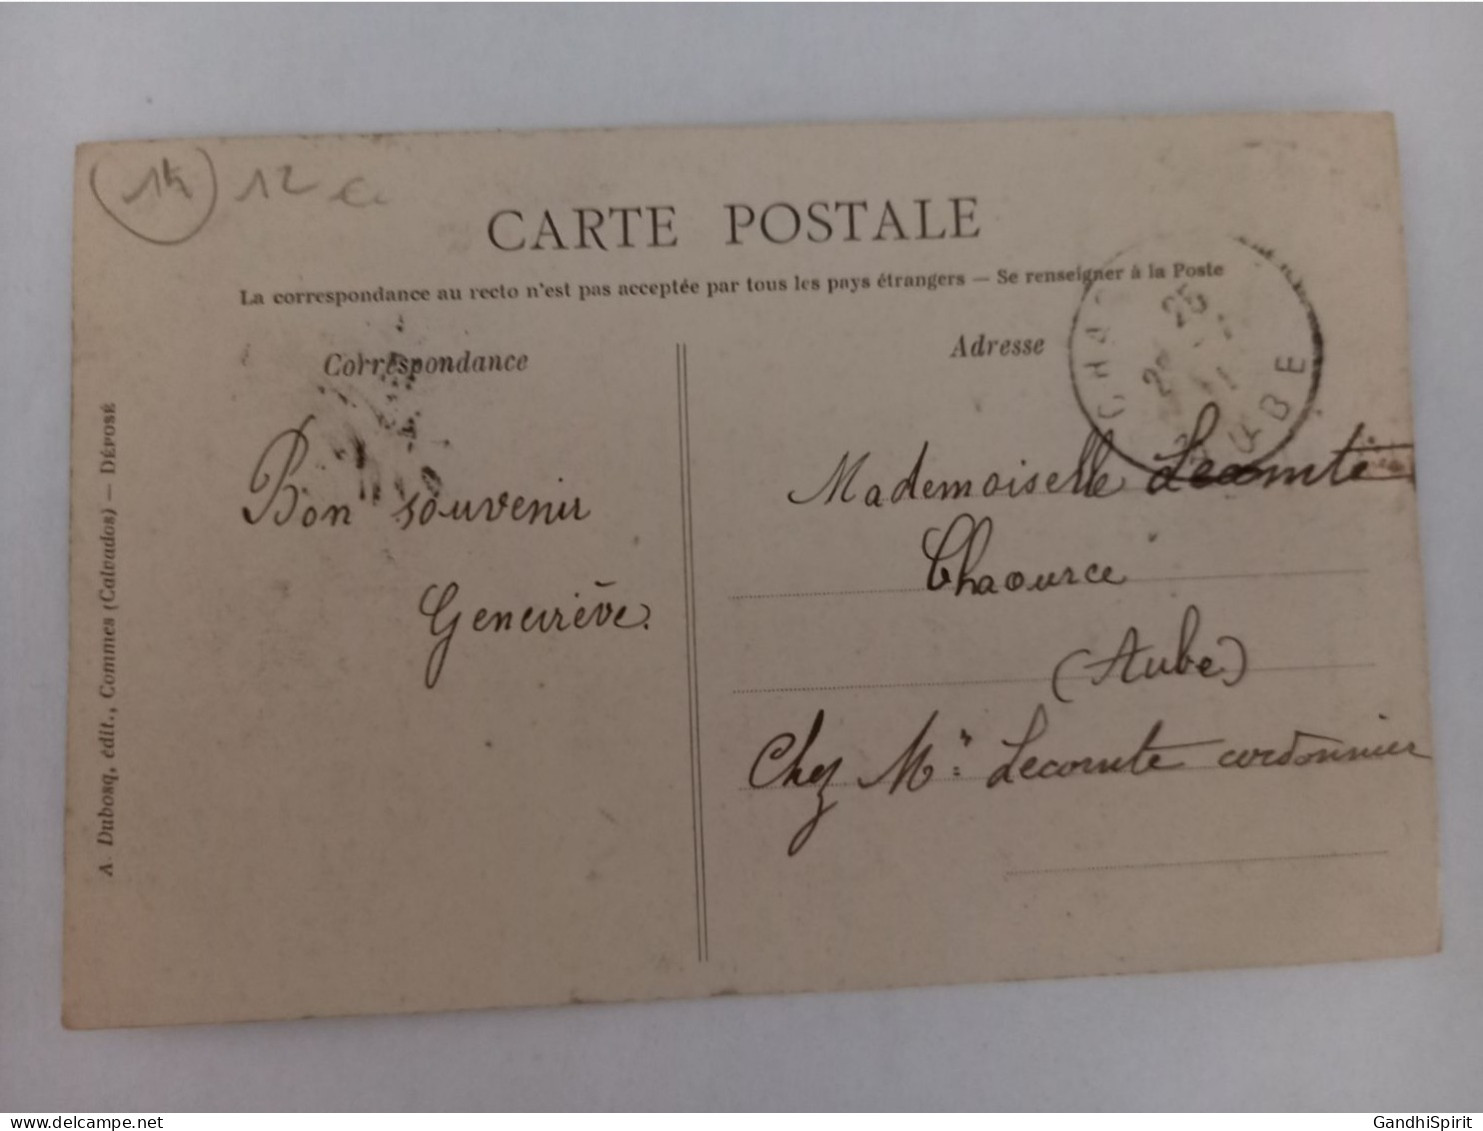 14 12
CARTE POSTALE
La correspondance au recto n'est pas acceptée par tous les pays étrangers — Se renseigner à la Poste
Correspondance
Adresse
25
AUBE
Bon souvenir
Geneviève.
Mademoiselle Lecomte
Chaource
(Aube)
Chez Mr Lecomte cordonnier
A. Dubosq, édit., Commes (Calvados) — DÉPOSÉ
GandhiSpirit